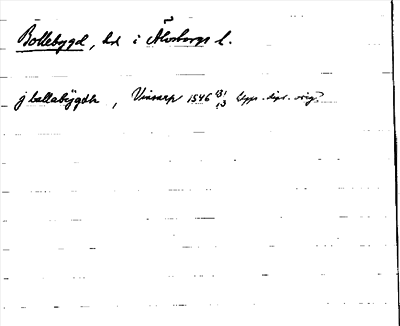 Bollebygd, hd i Älvsborgs l.
j bollabygdh, Vinsarp 1546 13/3 Upps. dipl. orig.